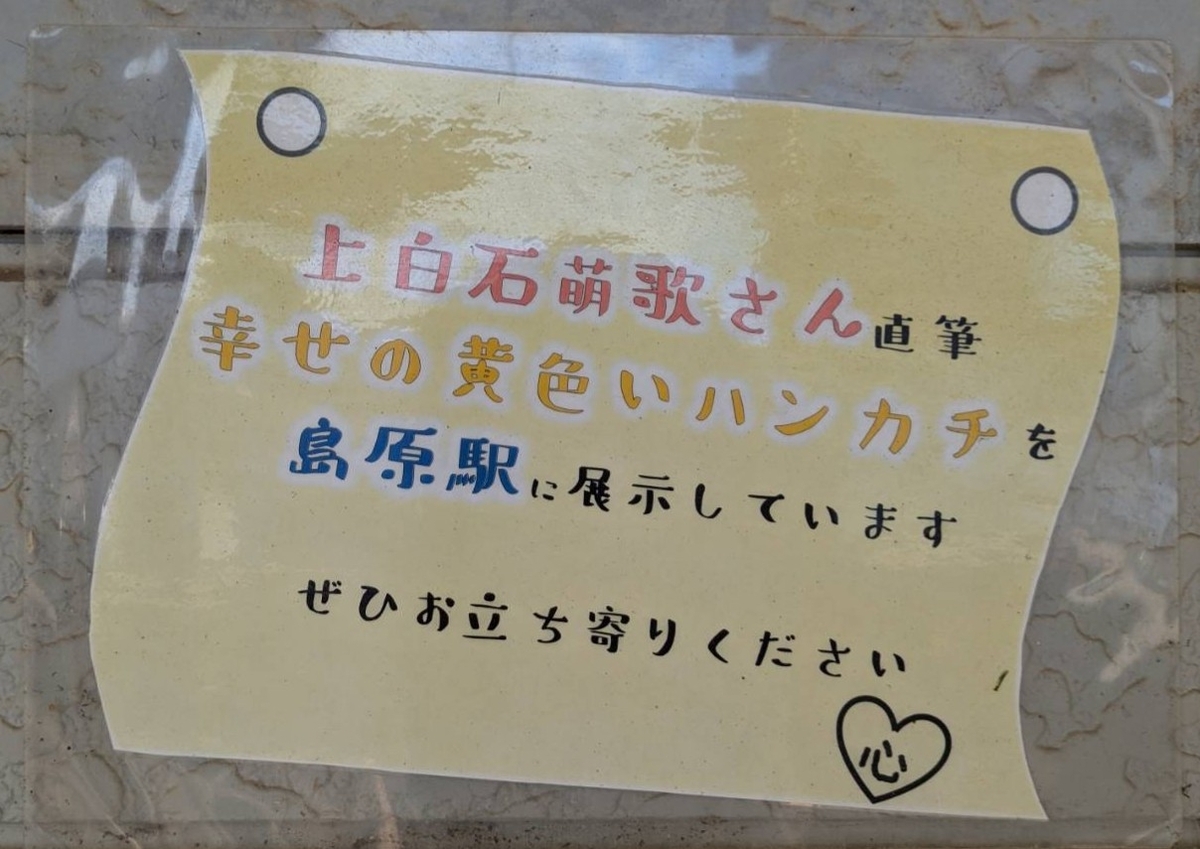 上白石萌歌さん直筆
幸せの黄色いハンカチを
島原駅に展示しています
ぜひお立ち寄りください
心